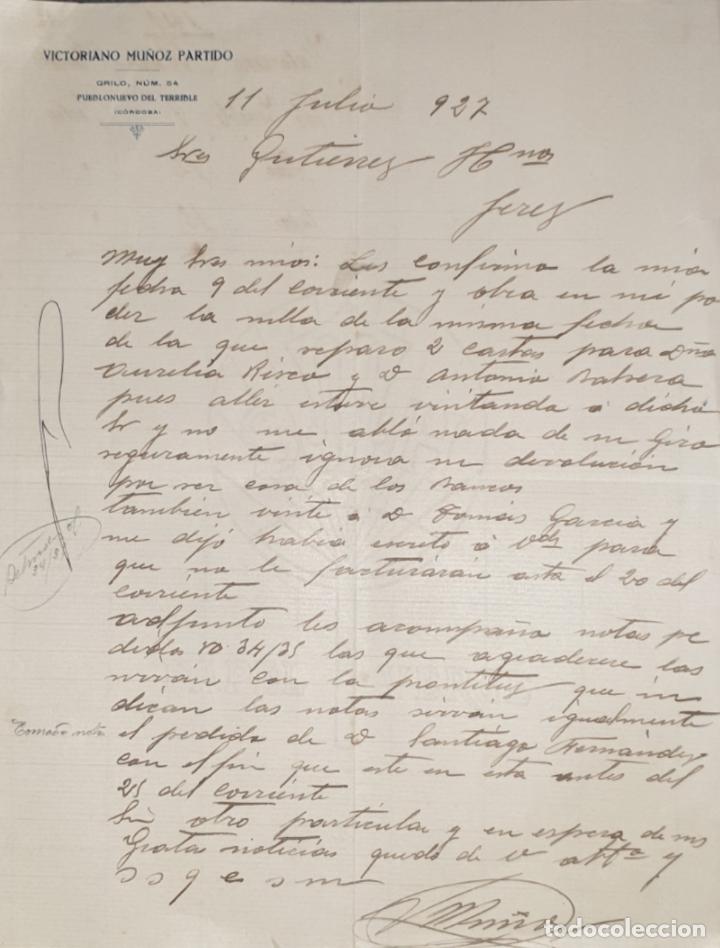 VICTORIANO MUÑOZ PARTIDO
GRILO, NÚM. 54
PUEBLONUEVO DEL TERRIBLE
(CÓRDOBA)
11 Julio 927
Sres Gutierrez Hnos
Jerez
Muy Sres mios: Les confirmo la mia
fecha 9 del corriente y obra en mi po
der la de la misma fecha
de la que reparo 2 cartas para Dña
Aurelia Risco y D Antonio
pues aller estuve visitando á dicho
Sr y no me abló nada de su Giro
seguramente ignora su devolución
por ser cosa de los Bancos
también visité á D Tomás Garcia y
me dijó habia escrito á Vds para
que no le facturáran asta el 20 del
corriente
adjunto les acompaño notas pe
didos nº 34/35 las que agradecere las
sirván con la prontituz que in
dicán las notas sirván igualmente
el pedido de D Santiágo Fernández
con el fin que este en esta antes del
25 del corriente
Sin otro particular y en espera de sus
Grata noticias quedo de V attº y
s s q e s m
Muñoz
34/35
Tomado nota
todocoleccion